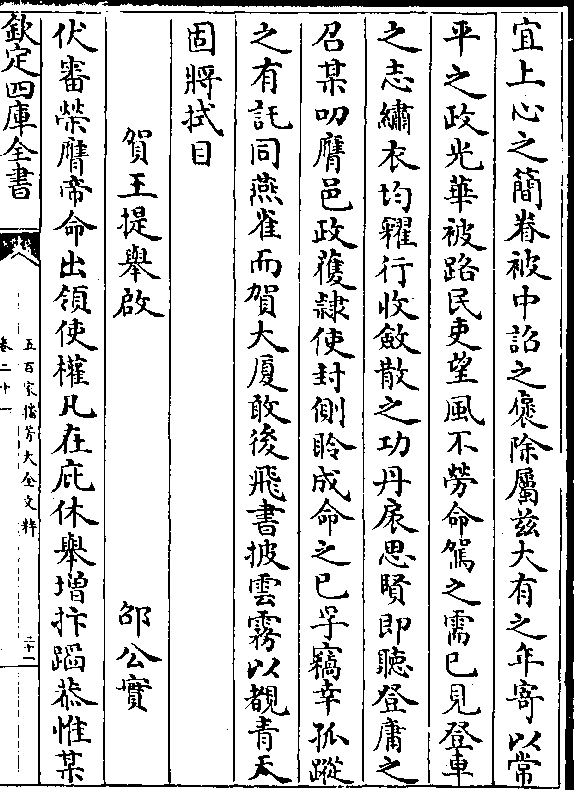 宜上心之簡眷被中詔之褒除屬兹大有之年寄以常
平之政光華被路民吏望風不勞命駕之需已見登車
之志繡衣均糶行收斂散之功丹扆思賢即聽登庸之
召某叨膺邑政獲隷使封側聆成命之已孚竊幸孤蹤
之有託同燕雀而賀大厦敢後飛書披雲霧以覩青天
固將拭目
賀王提舉啟
邵公實
伏審榮膺帝命出領使權凡在庇休舉增抃蹈恭惟某
欽定四庫全書
五百家播芳大全文粹
卷二十一
二十二